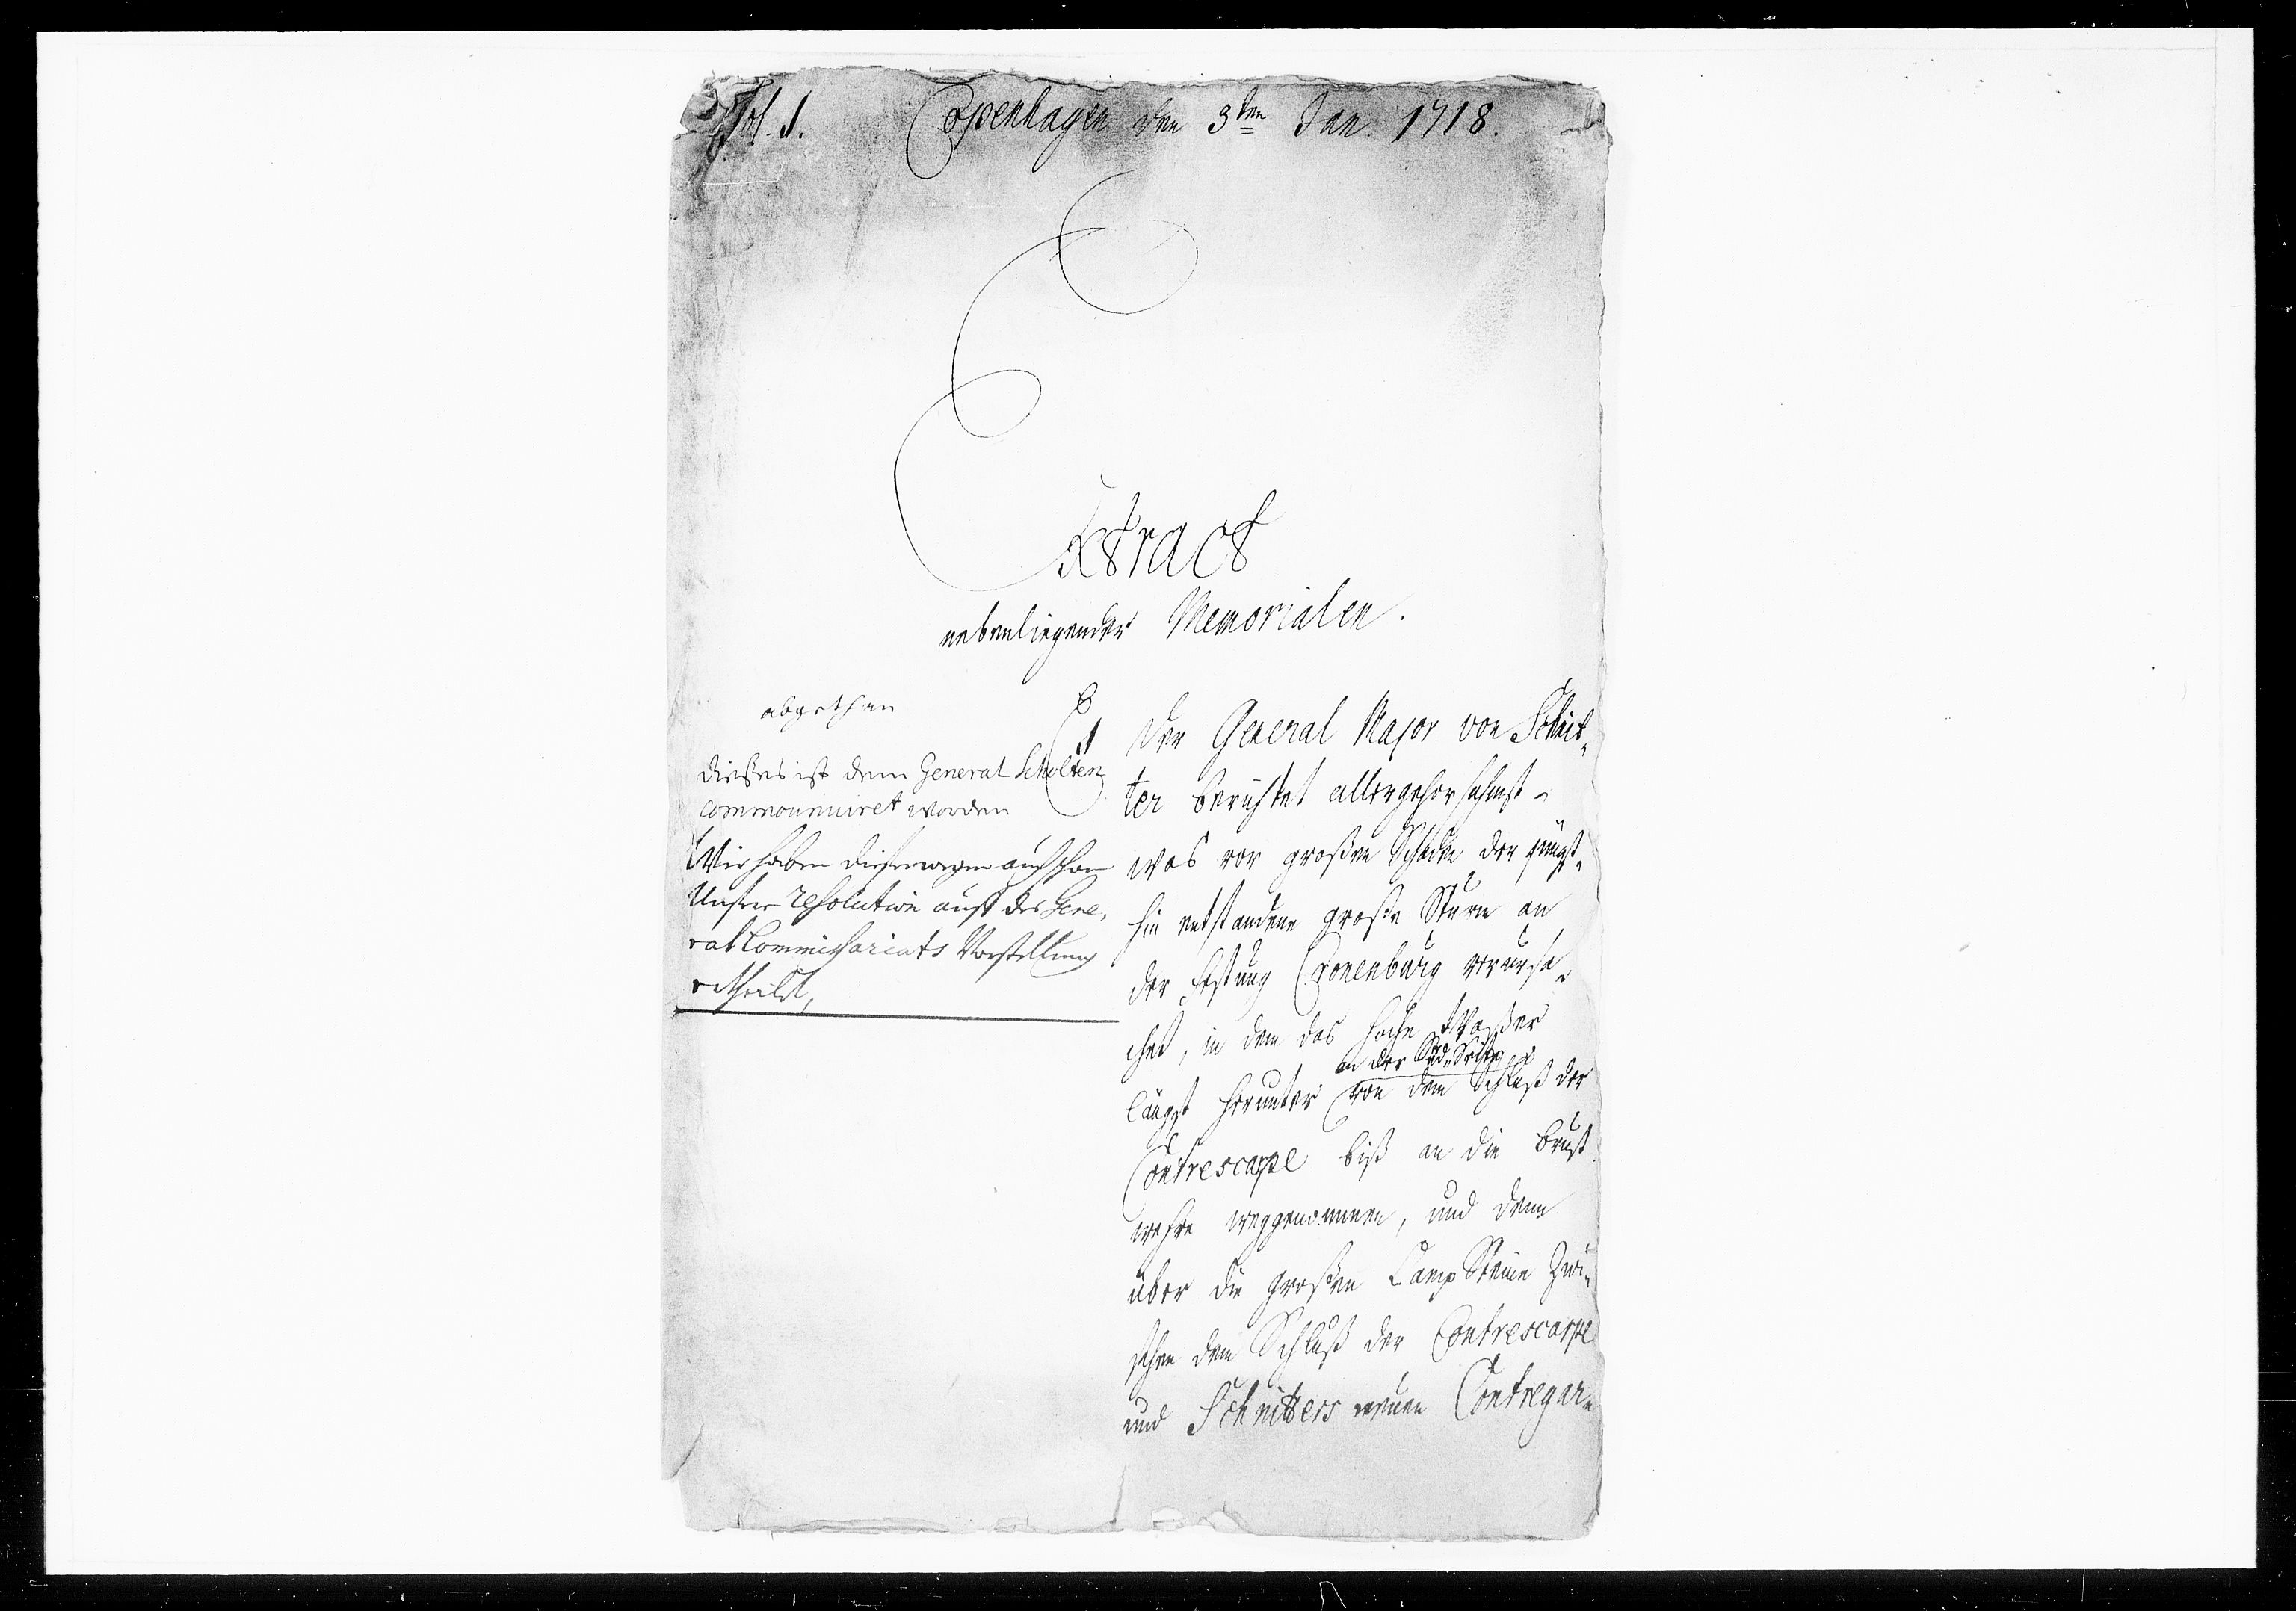 Fol. 1. Copenhagen den 3ten Jan. 1718.
Extract
nebenliegender Memorialen.
abgethan
dießes ist dem General Scholten
communiciret worden
Wir haben dießerwegen auch schon
Unsere resolution auf des Gene,
ral Commissariats Vorstellung
ertheilet,
1
Der General Major von Schnit-
ter berichtet allergehorsahmst
was vor großen Schaden der jüngst-
hin entstandene große Sturm an
der Festung Cronenburg verursa-
chet, in dem das hohe Waßer
an der Süd-Seite
längst herunter von dem Schluß der
Contrescarpe biß an die Brust
wehre weggenommen, und denn
über die großen Camp Steine zwi-
schen dem Schluß der Contrescarpe
und Schnitters neuen Contregar-